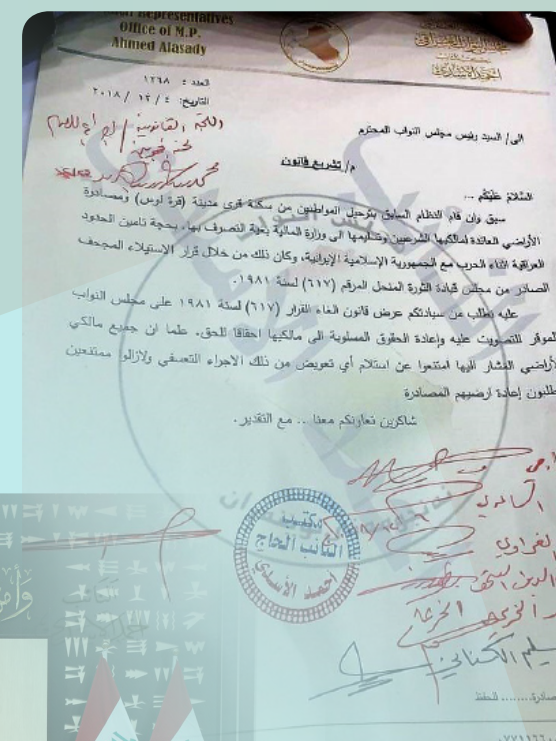 Representatives
Office of M.P.
Ahmed Alasady
العدد : ١٢٦٨
التاريخ: ٤ / ١٢ / ٢٠١٨
اللجنة القانونية
الى/ السيد رئيس مجلس النواب المحترم
م/ تشريع قانون
السَّلامُ عَلَيْكُم ...
سبق وان قام النظام السابق بترحيل المواطنين من سكنة قرى مدينة (قرة لوس) ومصادرة
الأراضي العائدة لمالكيها الشرعيين وتسليمها الى وزارة المالية بغية التصرف بها، بحجة تامين الحدود
العراقية اثناء الحرب مع الجمهورية الإسلامية الإيرانية، وكان ذلك من خلال قرار الاستيلاء المجحف
الصادر من مجلس قيادة الثورة المنحل المرقم (٦١٧) لسنة ١٩٨١.
عليه نطلب من سيادتكم عرض قانون الغاء القرار (٦١٧) لسنة ١٩٨١ على مجلس النواب
الموقر للتصويت عليه وإعادة الحقوق المسلوبة الى مالكيها احقاقا للحق. علما ان جميع مالكي
لأراضي المشار اليها امتنعوا عن استلام أي تعويض من ذلك الاجراء التعسفي ولازالوا ممتنعين
طلبون إعادة ارضيهم المصادرة
شاكرين تعاونكم معنا .. مع التقدير.
مكتب
النائب الحاج
احمد الأسدي
سليم الكناني
صادرة........ للحفظ